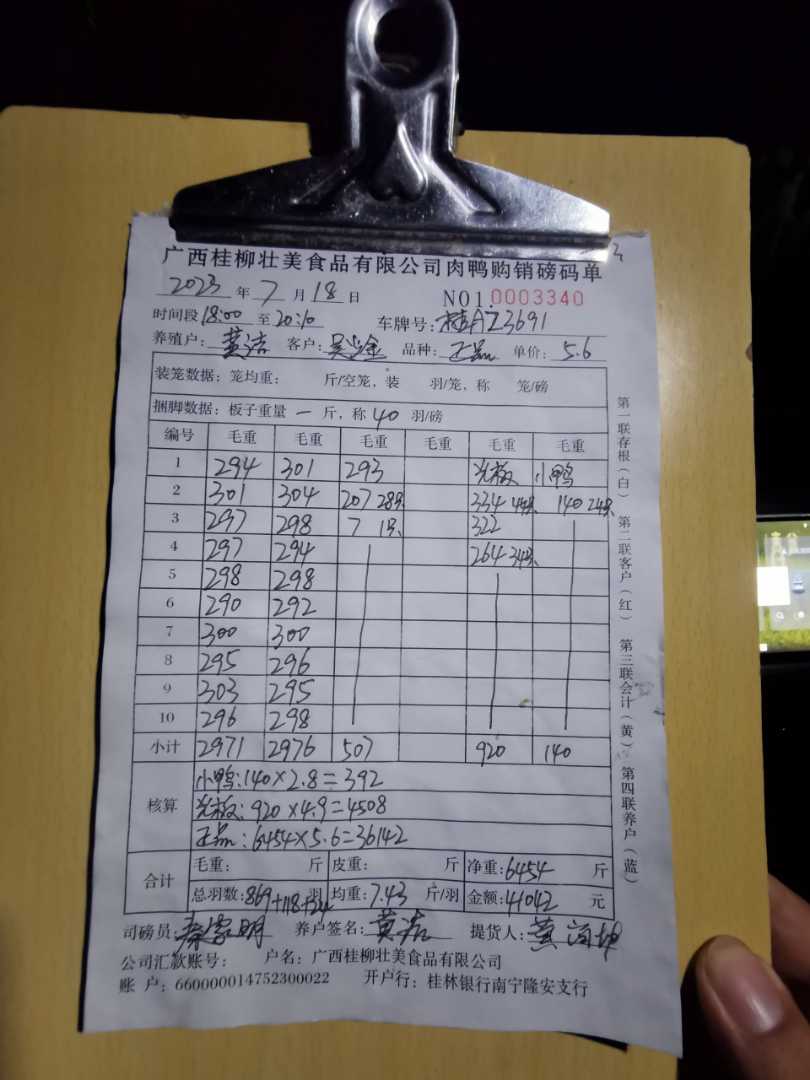 广西桂柳壮美食品有限公司肉鸭购销磅码单
2023 年 7 月 18 日 NO1.0003340
时间段 18:00 至 20:10 车牌号: 桂AZ3691
养殖户: 黄洁 客户: 品种: 正品 单价: 5.6
装笼数据: 笼均重: 斤/空笼, 装 羽/笼, 称 笼/磅
捆脚数据: 板子重量 一 斤, 称 40 羽/磅
编号 毛重 毛重 毛重 毛重 毛重 毛重
1 294 301 293 光板 小鸭
2 301 304 207 28只 334 44只 140 24只
3 297 298 7 1只 322
4 297 294 264 34只
5 298 298
6 290 292
7 300 300
8 295 296
9 303 295
10 296 298
小计 2971 2976 507 920 140
核算
小鸭:140×2.8=392
光板:920×4.9=4508
正品:6454×5.6=36142
合计
毛重: 斤 皮重: 斤 净重:6454 斤
总羽数:869+118+24 羽 均重:7.43 斤/羽 金额:41042 元
司磅员: 秦家明 养户签名: 黄洁 提货人: 黄
公司汇款账号: 户名: 广西桂柳壮美食品有限公司
账 户: 660000014752300022 开户行: 桂林银行南宁隆安支行
第一联存根(白) 第二联客户(红) 第三联会计(黄) 第四联养户(蓝)